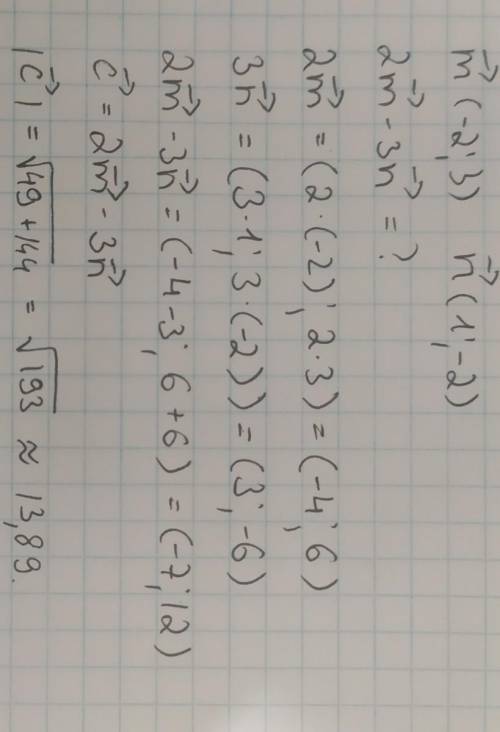 m⃗ (-2; 3)   n⃗ (1; -2)
2m⃗ - 3n⃗ = ?
2m⃗ = (2·(-2); 2·3) = (-4; 6)
3n⃗ = (3·1; 3·(-2)) = (3; -6)
2m⃗ - 3n⃗ = (-4-3; 6+6) = (-7; 12)
c⃗ = 2m⃗ - 3n⃗
|c⃗| = √(49+144) = √193 ≈ 13,89.